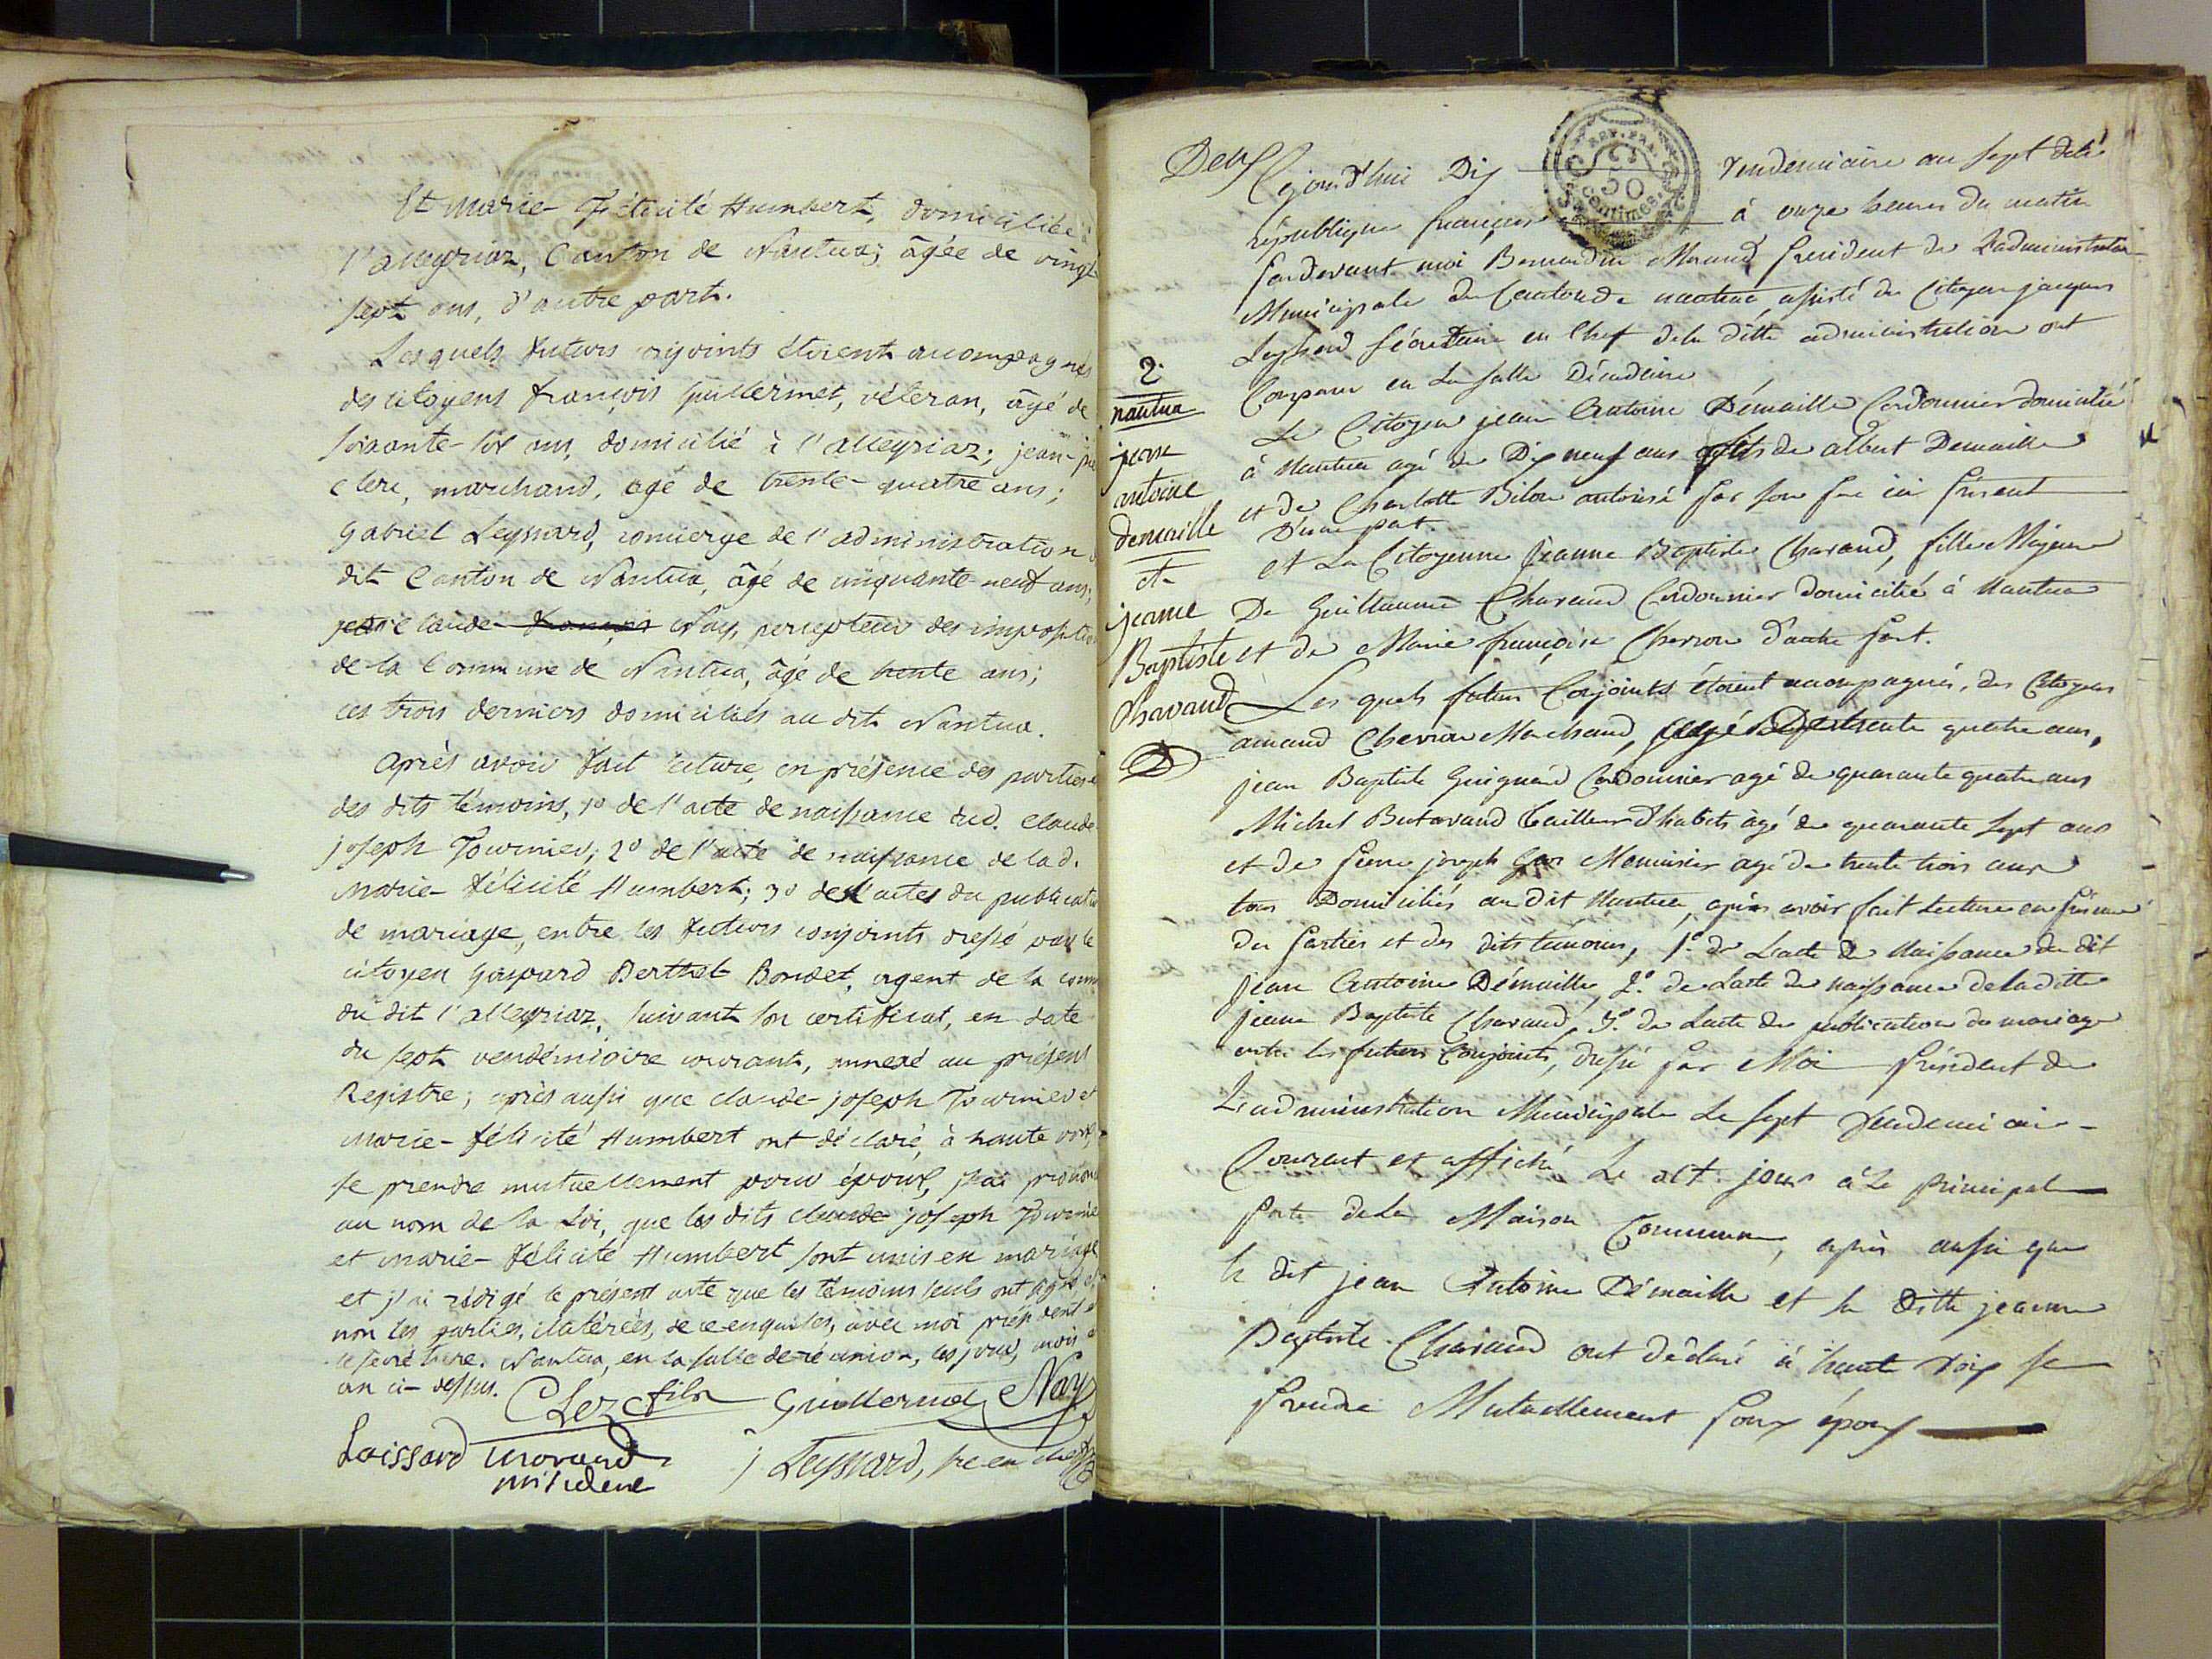 Et marie-Félicité Humbert, domiciliée à
l'alleyriaz, Canton de Nantua; âgée de vingt
sept ans, d'autre part.
Lesquels futurs conjoints étoient accompagnés
des citoyens françois Guillermet, véteran, âgé de
soixante-six ans, domicilié à l'alleyriaz; jean-
clerc, marchand, agé de trente-quatre ans;
gabriel Leyssard, concierge de l'administration
dit Canton de Nantua, âgé de cinquante-neuf ans;
claude françois Nay, percepteur des impositions
de la Commune de Nantua, âgé de trente ans;
ces trois derniers domiciliés au dit Nantua.
Après avoir fait lecture, en présence des parties
des dits témoins, 1º de l'acte de naissance dud. claude
joseph Tournier; 2º de l'acte de naissance de lad.
marie-félicité Humbert; 3º de l'actes du publication
de mariage, entre les futurs conjoints dressé par le
citoyen gaspard Berthet Bondet, agent de la comm
du dit l'alleyriaz, suivant son certificat, en date
du sept vendémiaire courant, annexé au présent
Registre; après aussi que claude-joseph Tournier et
marie-félicité Humbert ont déclaré, à haute voix,
se prendre mutuellement pour époux, j'ai prononcé
au nom de la Loi, que les dits claude joseph Tournier
et marie-félicité Humbert sont unis en mariage
et j'ai rédigé le présent acte que les témoins seuls ont signé
non les parties, illitérées, de ce enquises, avec moi président et
le secrétaire. Nantua, en la salle de réunion, les jour, mois
an ci-dessus.
Clerc fils Guillermet Nay
Laissard morand j Leyssard, sre en chef
président
Deux
Cejourd'hui Dix Vendemiaire an sept de la
république française à onze heures du matin
Pardevant moi Bernardin Morand president de L'administration
Municipale du Canton de nantua, assisté du Citoyen jacques
Leyssard sécretaire en Chef de la ditte administration ont
Comparu en La salle Décadaire
Le Citoyen jean Antoine Démaille Cordonnier domicilié
à Nantua agé de Dix neuf ans fils de albert Demaille
et de Charlotte Bilon autorisé par son pere ici présent
D'une part
et La Citoyenne Jeanne Baptiste Charaud, fille Majeure
De Guillaume Charaud Cordonnier domicilié à Nantua
et de Marie françoise Chevron d'autre part.
Les quels futurs Conjoints étoient accompagnés, des Citoyens
amand Chevron Marchand, agé De trente quatre ans,
jean Baptiste Guignard Cordonnier agé de quarante quatre ans
Michel Butavand tailleur d'habits âgé de quarante sept ans
et de pierre joseph Menuisier agé de trente trois ans
tous Domiciliés au dit Nantua, après avoir fait Lecture en présence
des parties et des dits témoins, 1º de L'acte de Naissance du dit
jean Antoine Démaille, 2º de L'acte de naissance de la ditte
jeanne Baptiste Charaud, 3º de L'acte de publication de mariage
entre les futurs Conjoints, dressé par Moi président de
L'administration Municipale Le sept Vendemiaire
Courant et affiché Le dit jour à La principale
porte de la Maison Commune, après aussi que
le dit jean Antoine Démaille et la ditte jeanne
Baptiste Charaud ont déclaré à haute voix se
prendre Mutuellement pour époux
2.
nantua
jean
antoine
demaille
et
jeanne
Baptiste
Charaud
D
REP. FRA.
50
Centimes